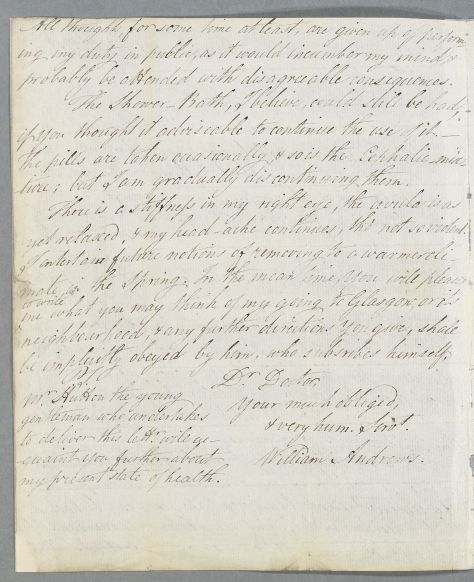 All thoughts for some time at least, are given up of perform-
ing my duty in public, as it would incumber my mind, &
probably be attended with disagreeable consequences.
The Shower-Bath, I believe, could still be had,
if you thought it adviseable to continue the use of it –
the pills are taken occasionally & so is the Cephalic mix-
ture; but I am gradually discontinuing them.
There is a stiffness in my right eye, the uvula is as
yet relaxed, & my head-ache continues, tho' not so violent.
I entertain future notions of removing to a warmer cli-
mate, in the Spring. In the mean time, you will please
to write
me what you may think of my going to Glasgow, or its
neighbourhood, & any further directions you give, shall
be implicitly obeyed by him, who subscribes himself,
Dr. Doctor,
Your much obliged,
& very hum. Servt.
William Andrews.
Mr. Hutton the young
gentleman who undertakes
to deliver this lettr. will ac-
quaint you further about
my present state of health.